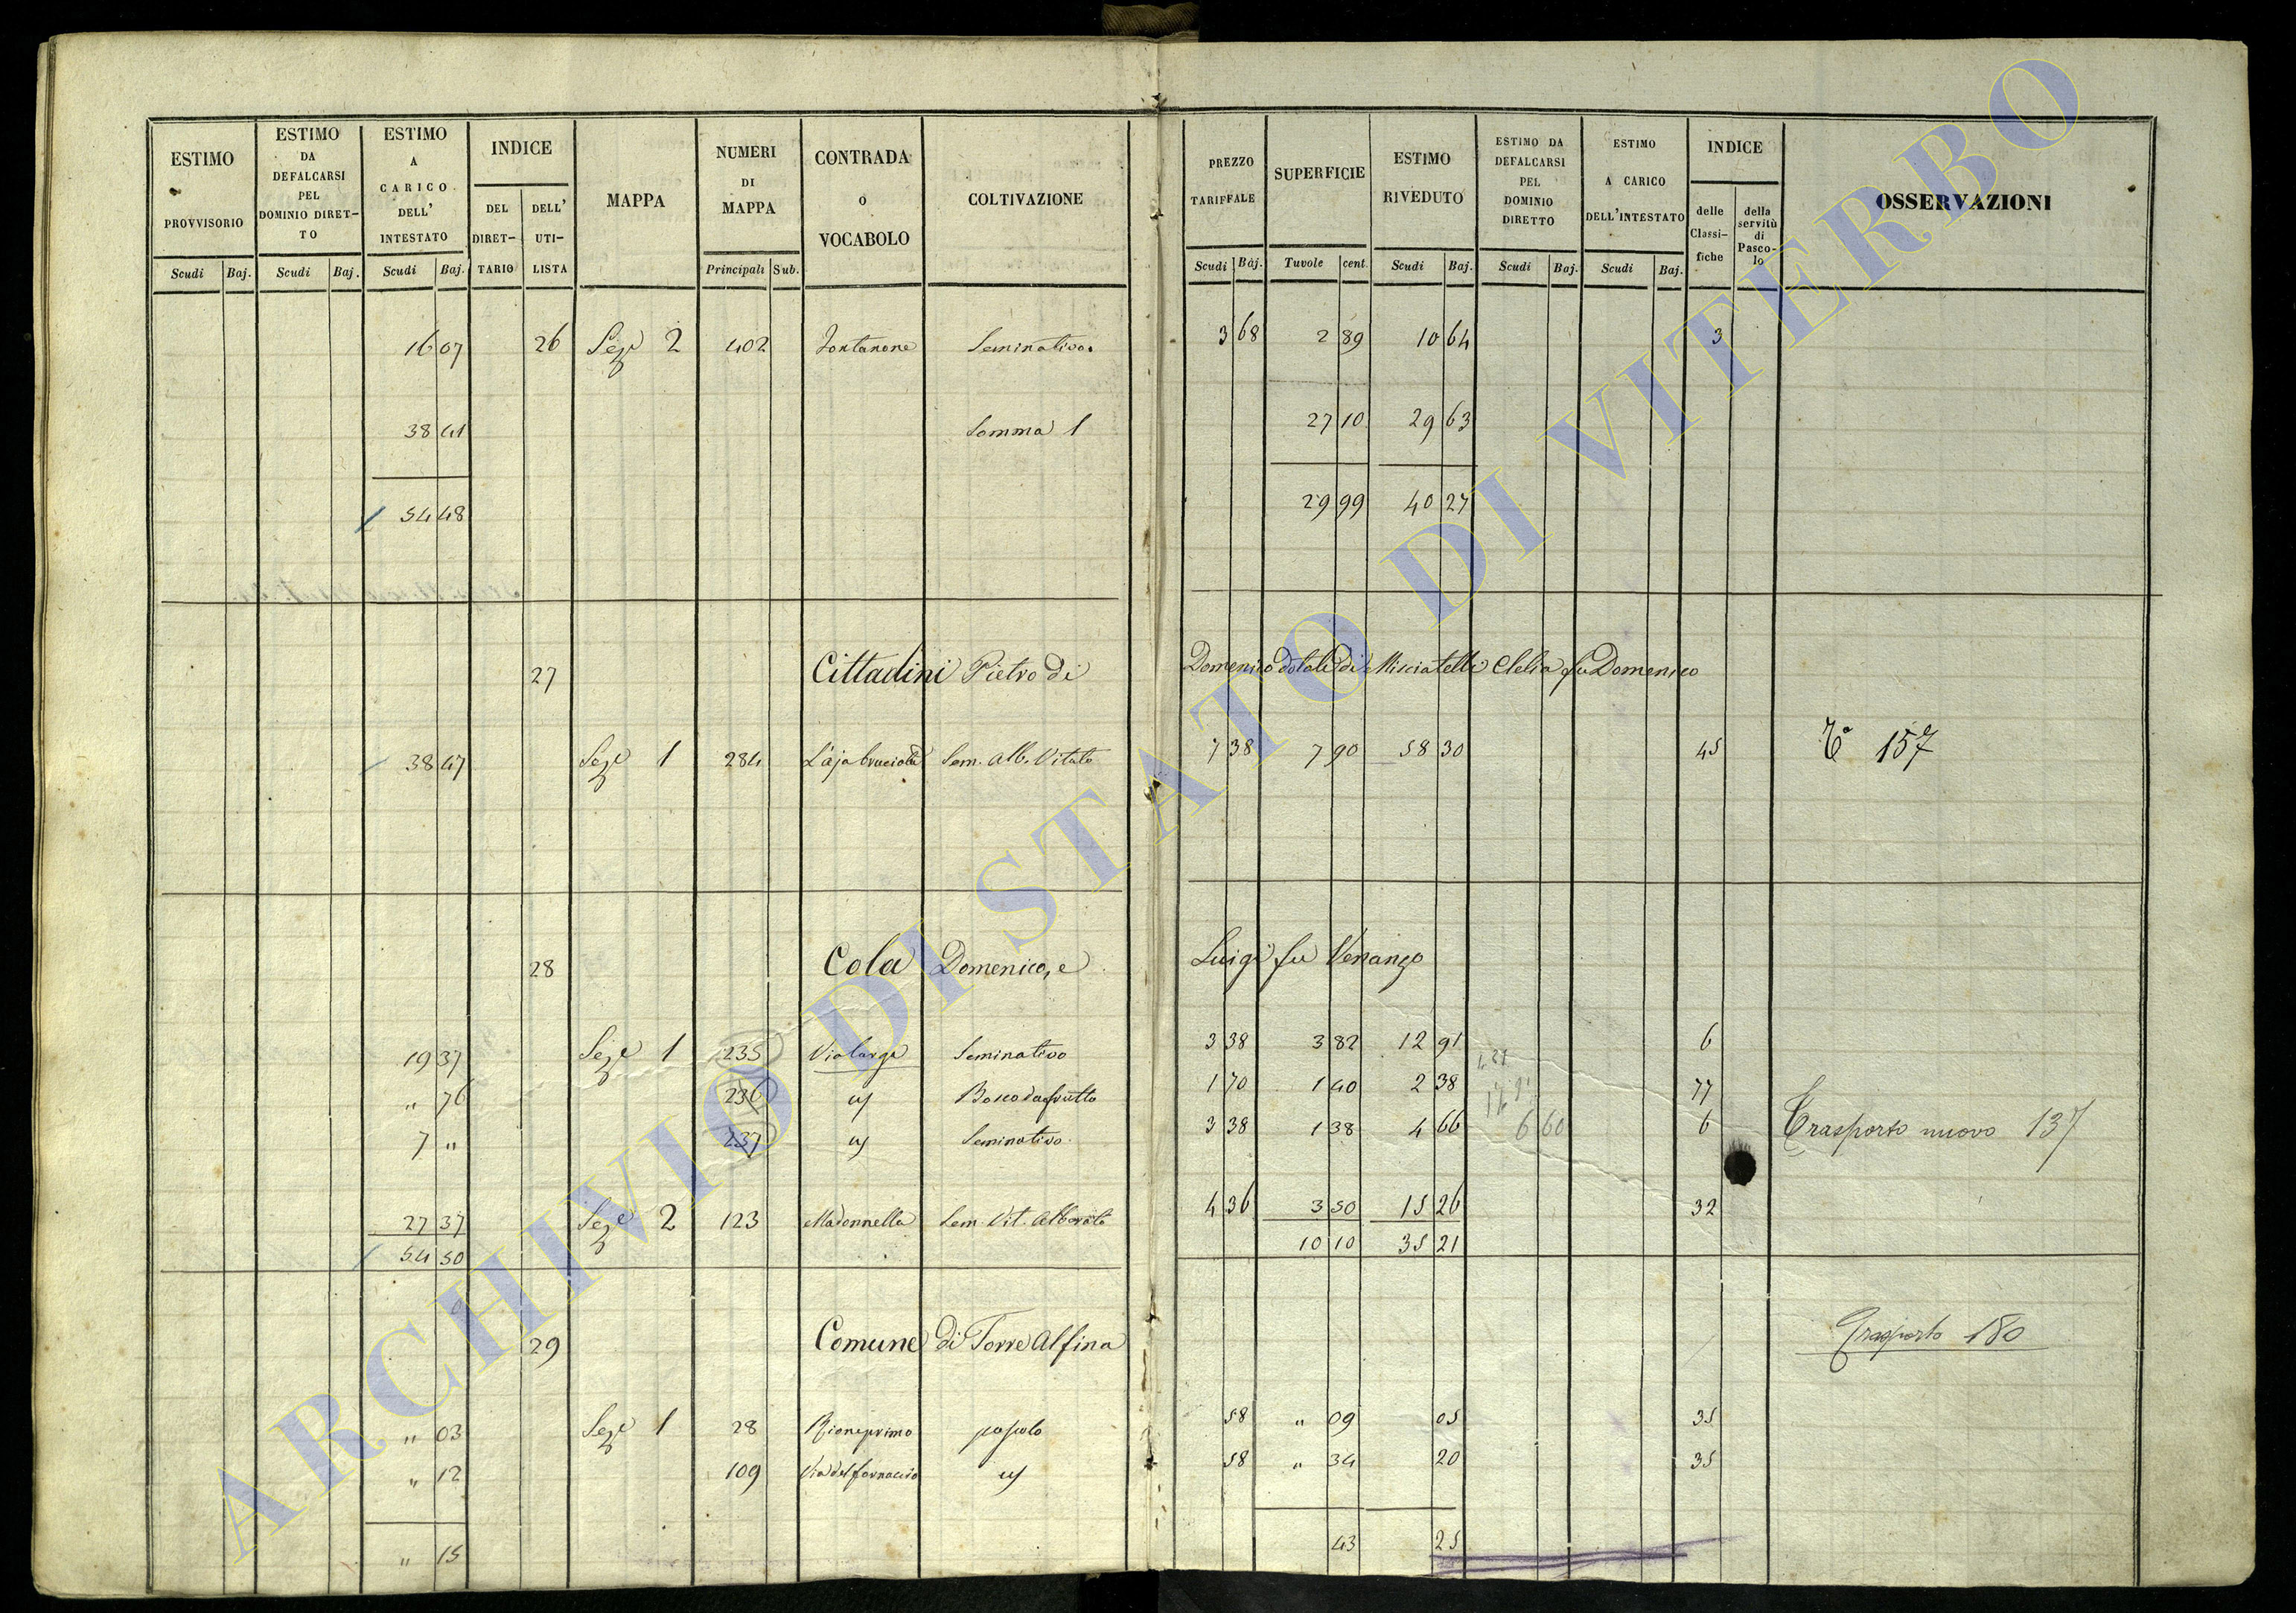 ESTIMO PROVVISORIO Scudi Baj.
ESTIMO DA DEFALCARSI PEL DOMINIO DIRETTO Scudi Baj.
ESTIMO A CARICO DELL' INTESTATO Scudi Baj.
INDICE DEL DIRETTARIO DELL' UTILISTA
MAPPA
NUMERI DI MAPPA Principali Sub.
CONTRADA O VOCABOLO
COLTIVAZIONE
PREZZO TARIFFALE Scudi Baj.
SUPERFICIE Tavole cent.
ESTIMO RIVEDUTO Scudi Baj.
ESTIMO DA DEFALCARSI PEL DOMINIO DIRETTO Scudi Baj.
ESTIMO A CARICO DELL'INTESTATO Scudi Baj.
INDICE delle Classifiche della servitù di Pascolo
OSSERVAZIONI
16 07 26 Seze 2 402 Fontanone Seminativo 3 68 2 89 10 64 3
38 41 Somma 1 27 10 29 63
54 48 29 99 40 27
27 Cittadini Pietro di Domenico dotali di Misciatelli Clelia fu Domenico
38 47 Seze 1 284 L'aja bruciata Sem. Alb. Vitato 7 38 7 90 58 30 45 To 157
28 Cola Domenico, e Luigi fu Venanzo
19 37 Seze 1 235 Vialarga Seminativo 3 38 3 82 12 91 6
" 76 236 " Bosco da frutto 1 70 1 40 2 38 77
7 " 237 " Seminativo 3 38 1 38 4 66 6 60 6 Trasporto nuovo 137
27 37 Seze 2 123 Madonnella Sem. Vit. Alborato 4 36 3 50 15 26 32
54 50 10 10 35 21
29 Comune di Torre Alfina Trasporto 180
" 03 Seze 1 28 Rione primo pascolo 58 " 09 05 35
" 12 109 Via del fornaccio " 58 " 34 20 35
" 15 43 25
ARCHIVIO DI STATO DI VITERBO